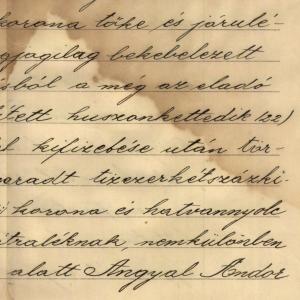 korona tőke és járulé-
gjogilag bekebelezett
sból a még az eladó
tett huszonkettedik (22)
kifizetése után tör-
maradt tizezerkétszázki-
korona és hatvannyolc
traléknak, nemkülönben
alatt Angyal Andor